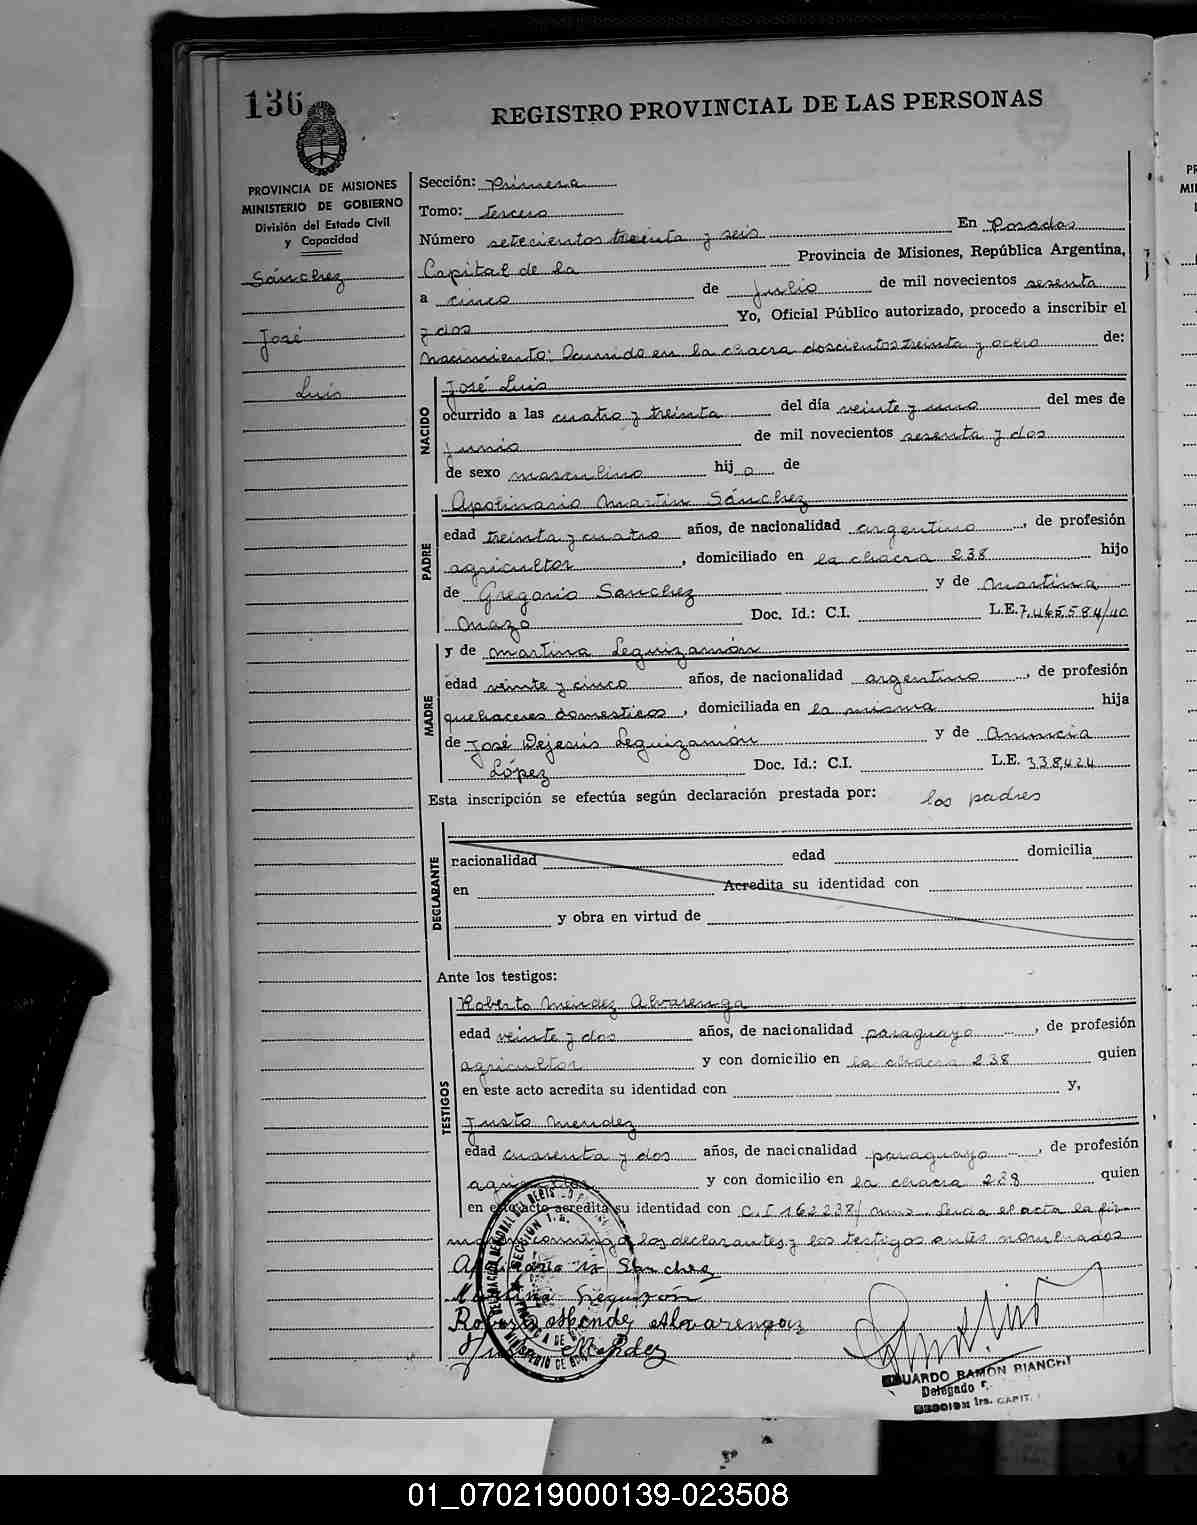 136
REGISTRO PROVINCIAL DE LAS PERSONAS
PROVINCIA DE MISIONES
MINISTERIO DE GOBIERNO
División del Estado Civil
y Capacidad
Sánchez
José
Luis
Sección: Primera
Tomo: tercero
Número setecientos treinta y seis En Posadas
Capital de la Provincia de Misiones, República Argentina,
a cinco de julio de mil novecientos sesenta
y dos Yo, Oficial Público autorizado, procedo a inscribir el
Nacimiento: Ocurrido en la chacra doscientos treinta y ocho de:
NACIDO
José Luis
ocurrido a las cuatro y treinta del día veinte y uno del mes de
junio de mil novecientos sesenta y dos
de sexo masculino hijo de
PADRE
Apolinario Martin Sánchez
edad treinta y cuatro años, de nacionalidad argentino, de profesión
agricultor, domiciliado en la chacra 238 hijo
de Gregorio Sanchez y de Martina
Mazo Doc. Id.: C.I. L.E. 7.465.584/40
MADRE
y de Martina Leguizamón
edad veinte y cinco años, de nacionalidad argentino, de profesión
quehaceres domesticos, domiciliada en la misma hija
de José Dejesús Leguizamón y de Anuncia
López Doc. Id.: C.I. L.E. 338,424
Esta inscripción se efectúa según declaración prestada por: los padres
DECLARANTE
nacionalidad edad domicilia
en Acredita su identidad con
y obra en virtud de
Ante los testigos:
TESTIGOS
Roberto Méndez Alvarenga
edad veinte y dos años, de nacionalidad paraguayo, de profesión
agricultor y con domicilio en la chacra 238 quien
en este acto acredita su identidad con y,
Justo Mendez
edad cuarenta y dos años, de nacionalidad paraguayo, de profesión
agricultor y con domicilio en la chacra 238 quien
en este acto acredita su identidad con C.I 162238/ Leida el acta la fir-
man conmigo los declarantes y los testigos antes nombrados
Apolinario M Sanchez
Martina
Roberto Mende Alvarengaz
Mendez
SECCION 1a.
EDUARDO RAMON BIANCHI
Delegado
SECCION 1ra. CAPIT.
01_070219000139-023508